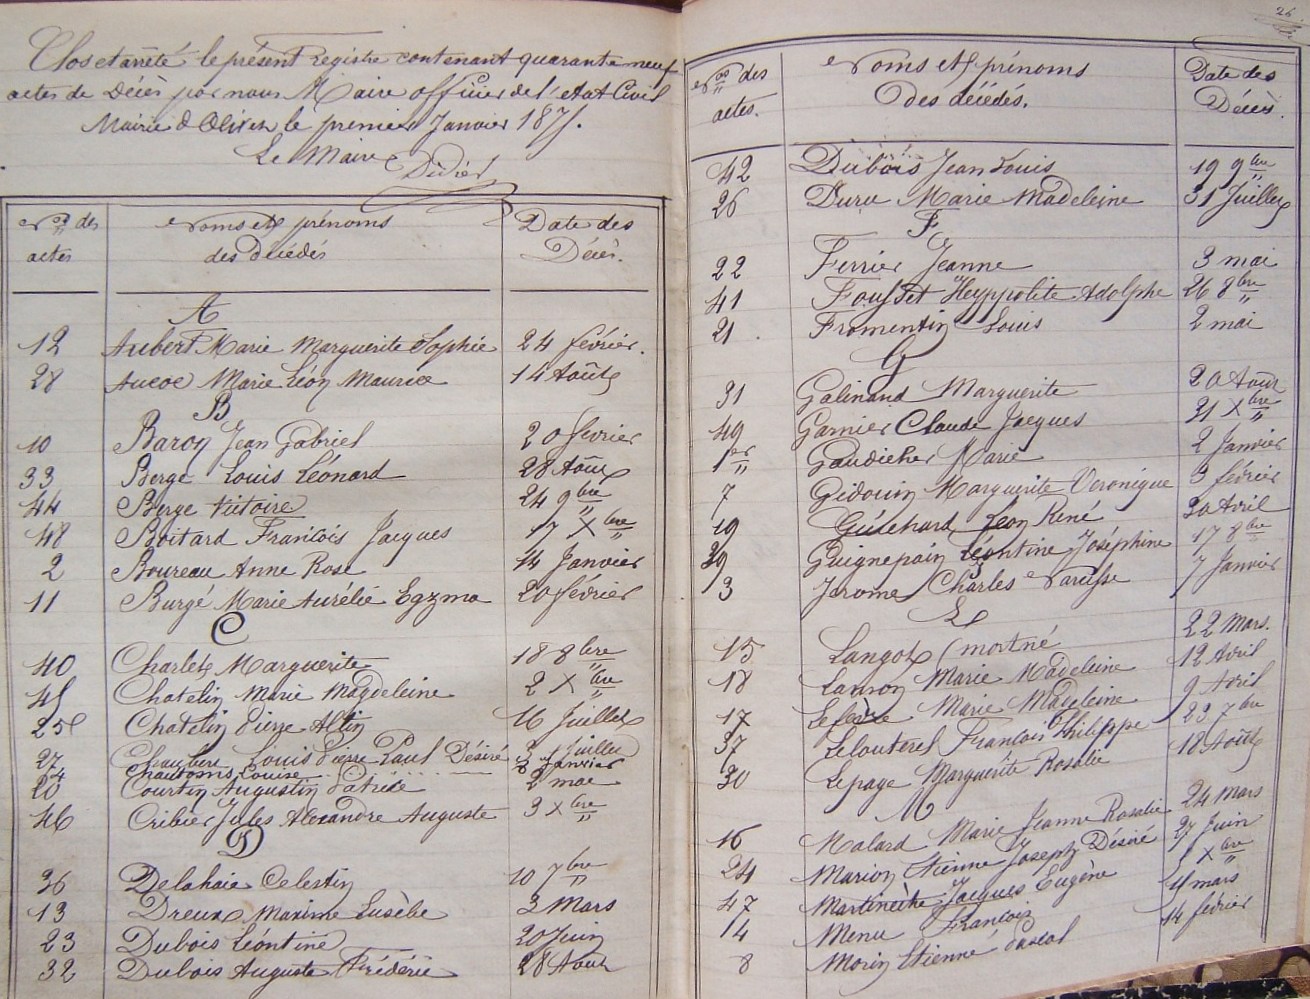 Clos et arrêté le présent Registre contenant quarante neuf
actes de Décès par nous Maire officier de l'etat Civil
Mairie d'Olivet le premier Janvier 187.
Le Maire
Didier
Nos des actes
Noms et prénoms des décédés
Date des Décès.
A
12 Aubert Marie Marguerite Sophie 24 février.
28 Aucoc Marie Léon Maurice 14 Août
B
10 Baron Jean Gabriel 20 février
33 Berge Louis Léonard 28 Août
44 Berge Victoire 24 9bre
48 Boitard François Jacques 17 Xbre
2 Boureau Anne Rose 4 Janvier
11 Burgé Marie Aurélie Egzma 20 février
C
40 Charlet Marguerite 18 8bre
45 Chatelin Marie Magdeleine 2 Xbre
25 Chatelin Pierre 16 Juillet
27 Louis Pierre Paul Désiré Juillet
Louise Janvier
20 Courtin Augustin Patrice 2 mai
46 Cribier Jules Alexandre Auguste 3 Xbre
D
36 Delahaie Celestin 10 7bre
13 Dreux Maxime Eusèbe 3 Mars
23 Dubois Léontine 20 Juin
32 Dubois Auguste Frédéric 28 Août
26
Nos des actes.
Noms et prénoms des décédés.
Date des Décès.
42 Dubois Jean Louis 19 9bre
26 Duru Marie Madeleine 31 Juillet
F
22 Ferrier Jeanne 3 mai
41 Fousset Heyppolite Adolphe 26 8bre
21 Fromentin Louis 2 mai
G
31 Galinand Marguerite 20 Août
49 Garnier Claude Jacques 31 Xbre
1er Gaudicher Marie 2 Janvier
7 Gidouin Marguerite Veronique 3 février
19 Guilchard Leon René 30 Avril
39 Guignepain Léontine Joséphine 17 8bre
3 Jarome Charles Narcisse 7 Janvier
L
15 Langot (mort né 22 Mars.
18 Lanson Marie Madeleine 12 Avril
17 Lefevre Marie Madeleine 9 Avril
37 Lelouterel François Philippe 23 7bre
30 Lepage Marguerite Rosalie 18 Août
M
16 Malard Marie Jeanne Rosalie 24 Mars
24 Marion Etienne Joseph Désiré 27 Juin
47 Jacques Eugène Xbre
14 Menu François 4 mars
8 Morin Etienne Pascal 14 février